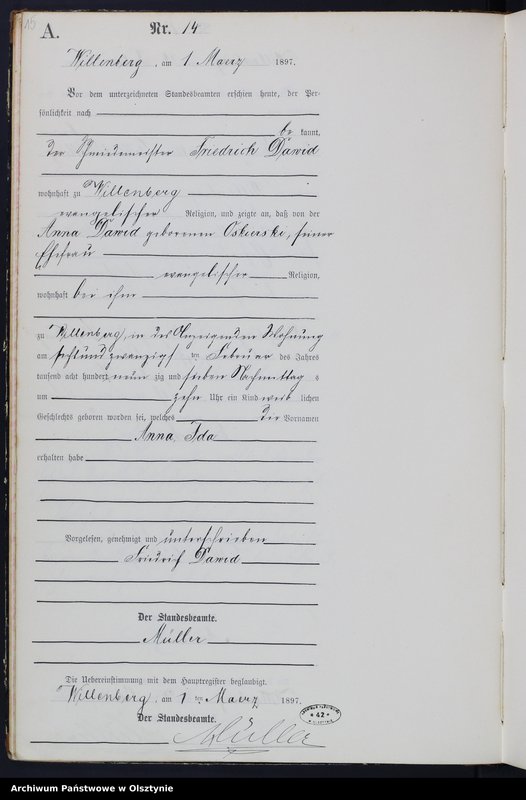 15
A.
Nr. 14
Willenberg, am 1 Maerz 1897.
Vor dem unterzeichneten Standesbeamten erschien heute, der Per-
sönlichkeit nach
be kannt,
der Friedrich Dawid
wohnhaft zu Willenberg
evangelischer Religion, und zeigte an, daß von der
Anna Dawid geborenen Oskierski, seiner
Ehefrau
evangelischer Religion,
wohnhaft bei ihm
zu Willenberg, in des Anzeigenden Wohnung
am sechsundzwanzigs ten Februar des Jahres
tausend acht hundert neun zig und sieben Nachmittag s
um zehn Uhr ein Kind weib lichen
Geschlechts geboren worden sei, welches die Vornamen
Anna Ida
erhalten habe
Vorgelesen, genehmigt und unterschrieben
Friedrich Dawid
Der Standesbeamte.
Müller
Die Uebereinstimmung mit dem Hauptregister beglaubigt.
Willenberg, am 1 ten Maerz 1897.
Der Standesbeamte.
Müller
* 42 *
Archiwum Państwowe w Olsztynie